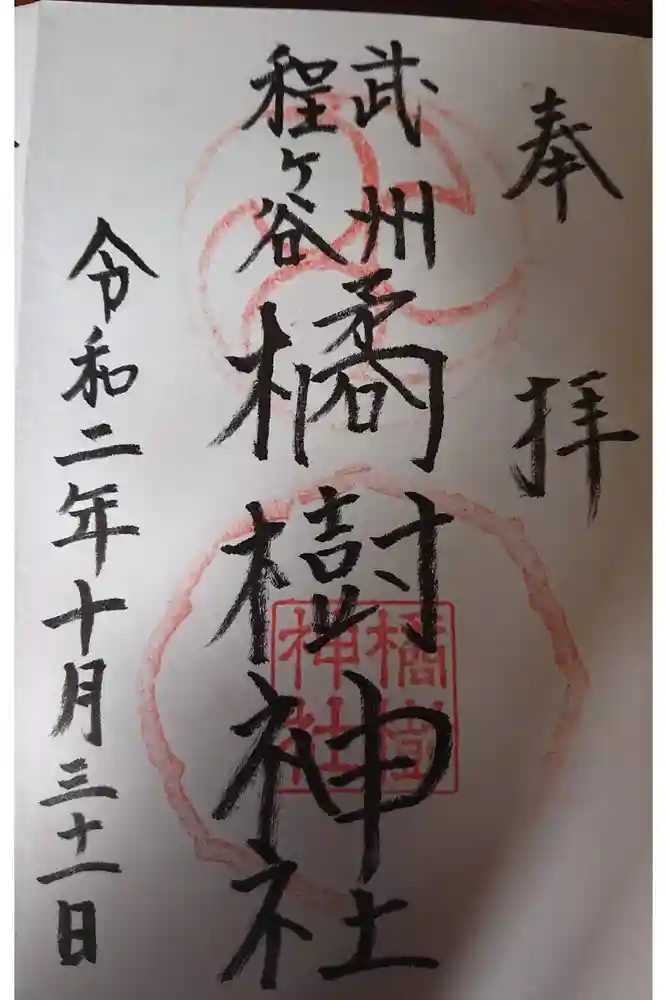 奉拝
武州
程ヶ谷
橘樹神社
橘樹
神社
令和二年十月三十一日